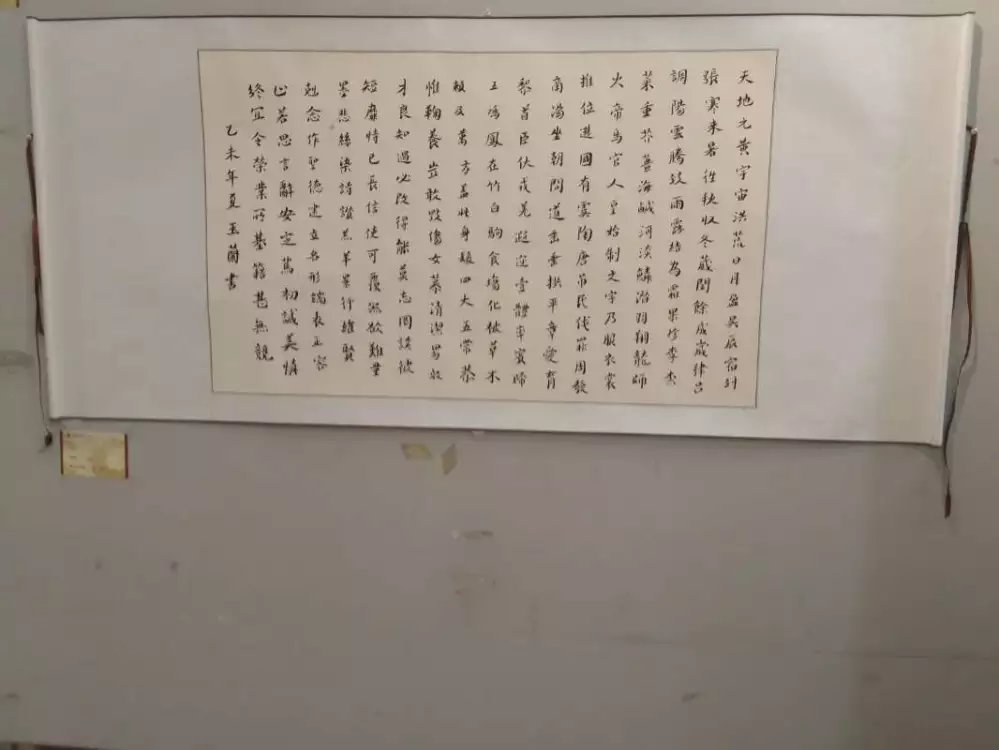 天地元黄宇宙洪荒日月盈昃辰宿列
張寒来暑往秋收冬藏閏餘成歲律吕
調陽雲騰致雨露結為霜果珍李柰
菜重芥薑海鹹河淡鱗潛羽翔龍師
火帝鳥官人皇始制文字乃服衣裳
推位遜國有虞陶唐吊民伐罪周發
商湯坐朝問道垂垂拱平章愛育
黎首臣伏戎羌遐邇壹體率賓歸
王鳴鳳在竹白駒食場化被草木
賴及萬方蓋此身髮四大五常恭
惟鞠養豈敢毀傷女慕清潔男效
才良知過必改得能莫忘罔談彼
短靡恃己長信使可覆器欲難量
墨悲絲染詩讚羔羊景行維賢
剋念作聖德建立名形端表正容
止若思言辭安定篤初誠美慎
終宜令榮業所基籍甚無競
乙未年夏玉蘭書